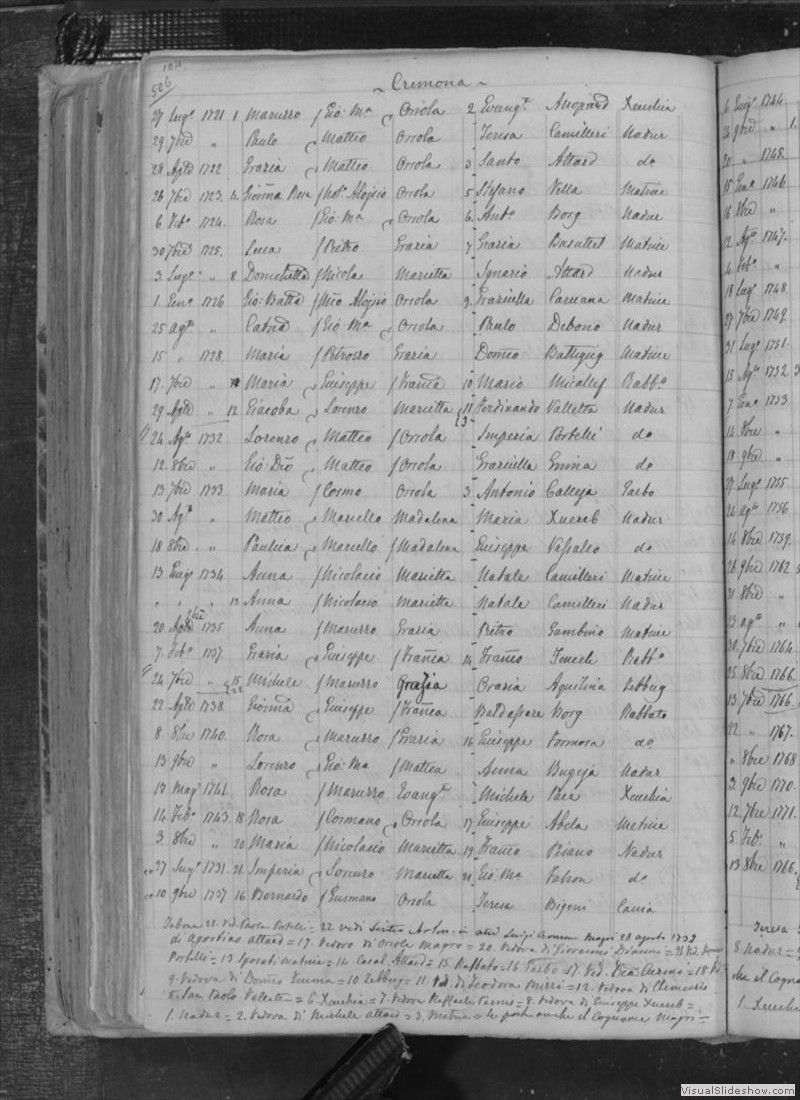 506
~ Cremona ~
27 Lug.o 1721 1 Maruzzo / Gio: Ma Oriola 2 Evang.ta Xeuchia
29 7bre " Paulo Matteo Oriola Teresa Camilleri Nadur
28 Aple 1722 Grazia / Matteo Oriola 3 Santo Attard do
26 7bre 1723. 4 Gioãna Rosa / Not. Aloysio Oriola 5 Stefano Vella Matrice
6 Feb.o 1724. Rosa / Gio: Ma Oriola 6 Ant.o Borg Nadur
30 7bre 1725. Luca / Pietro Grazia 7 Grazia Busuttil Matrice
3 Lug.o " 8 Domichella / Nicola Marietta Ignazio Attard Nadur
1 Gen.o 1726 Gio: Batta / Aloysio Oriola 9 Graziella Caruana Matrice
25 ag.to " Catna / Gio: Ma Oriola Paulo Debono Nadur
15 " 1728. Maria / Petrozzo Grazia Domco Battigieg Matrice
17. 7bre " Maria Giuseppe / Franca 10 Mario Micallef Rabb.o
29 Aple " 12 Giacoba Lorenzo Marietta 11 Ferdinando Valletta Nadur
24 Ag.o 1732 Lorenzo Matteo / Oriola Imperia Portelli do
12 8bre " Gio: Dio Matteo / Oriola Graziella Emina do
13 7bre 1733 Maria / Cosmo Oriola 3 Antonio Calleja Garbo
30 Ag.to " Matteo Marcello Madalena Maria Xuereb Nadur
18 8bre " Paulica Marcello / Madalena Giuseppe Vassallo do
13 Giug.o 1734 Anna / Nicolacio Marietta Natale Camilleri Matrice
" " " 13 Anna / Nicolacio Marietta Natale Camilleri Nadur
20 Aple 1735 Anna / Maruzzo Grazia Pietro Gambino Matrice
7. Feb.o 1737. Grazia Giuseppe / Franca 14 Franco Rabb.o
24 7bre " 15 Michele / Maruzzo Grazia Orazia Aquilina Zebbug
22 Aple 1738. Gioãna Giuseppe / Franca Baldassare Borg Rabbato
8 8bre 1740. Rosa Maruzzo / Grazia 16 Giuseppe Formosa do
13 9bre " Lorenzo Gio: Ma / Mattea Anna Bugeja Nadur
17 Mag.o 1741. Rosa / Maruzzo Evang.ta Michele Pace Xeuchia
14 Feb.o 1743. 18 Rosa / Cosmano Oriola 17 Giuseppe Abela Matrice
3 8bre " 20 Maria / Nicolacio Marietta 19 Franco Pisano Nadur
27 Lug.o 1731. 21 Imperia Lorenzo Marietta 21 Gio: Ma Falzon do
10 9bre 1737 16 Bernardo / Oriola Teresa Bigeni Cauia
di Agostino attard = 17. Vedovo di Oriola Magro = 20. Vedova di Giovanni
Portelli = 13 Sposati Matrice = 14 Casal Attard = 15 Rabbato = 16 Garbo = 17 Ved.
9. Vedova di Domco Emma = 10 Zebbug = 11 Ved. di Teodora Mizzi = 12. Vedova di Clemenzio
5. San Paolo Valletta = 6 Xeuchia = 7. Vedova Raffaele = 8. Vedova di Giuseppe Xuereb =
1. Nadur = 2. Vedova di Michele attard = 3. Matrice = le porta anche il Cognome Magri =
6 Giug.o 1744.
24 9bre " 1.
20 " 1745.
15 Gen.o 1746
16 8bre "
12 Ag.o 1747.
4 Feb.o "
18 Lug.o 1748.
27 7bre 1749.
31 Lug.o 1751.
15 Ag.o 1752
7 Gen.o 1753
14 8bre "
18 9bre "
27 Lug.o 1755
24 ag.to 1756
14 8bre 1759.
26 9bre 1762
31 8bre "
13 ag.o "
30 7bre 1764.
25 8bre 1766.
13 7bre 1766.
22 " 1767.
" 8bre 1768
2 9bre 1770.
12 7bre 1771.
5 Feb.o "
13 8bre 1766.
Teresa
8. Nadur =
il Cogno
1. Xeuchi
VisualSlideshow.com